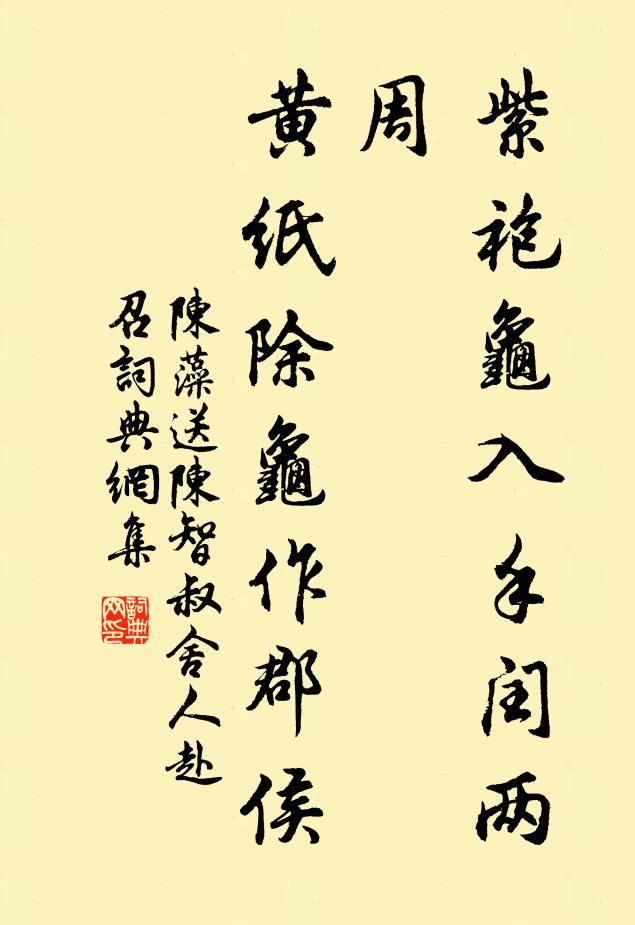 紫袍龜入手閏兩
周
黃紙除龜作郡侯
陳藻送陳智叔舍人赴
召詞典網集
詞典
网印